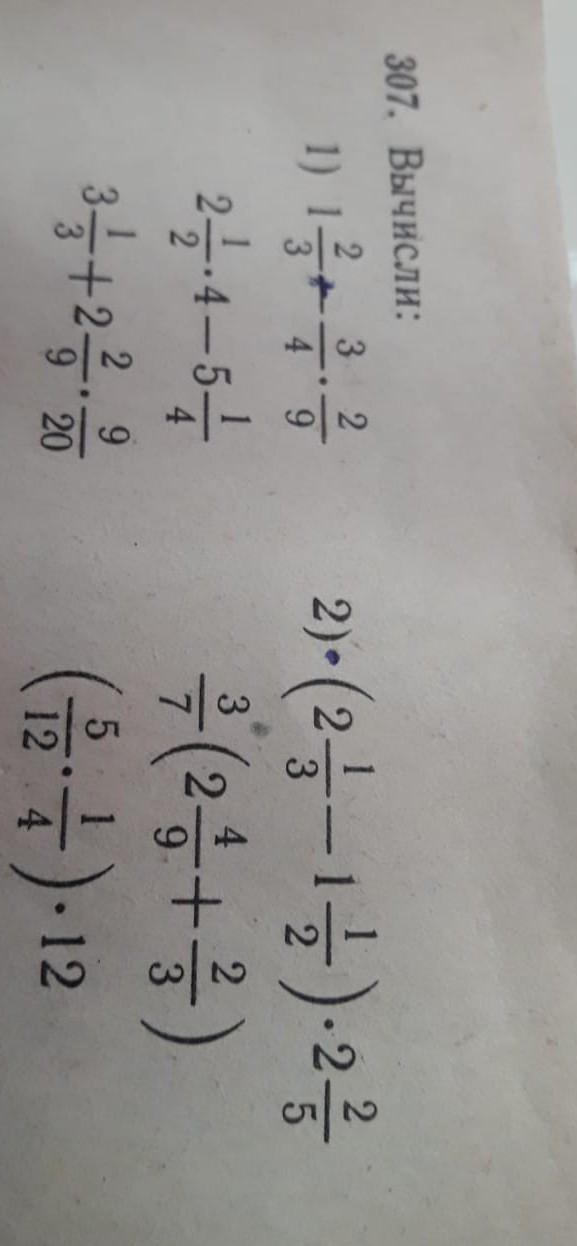 307. Вычисли:
1) 1 2/3 - 3/4 · 2/9
2 1/2 · 4 — 5 1/4
3 1/3 + 2 2/9 · 9/20
2) (2 1/3 — 1 1/2) · 2 2/5
3/7 (2 4/9 + 2/3)
(5/12 · 1/4) · 12